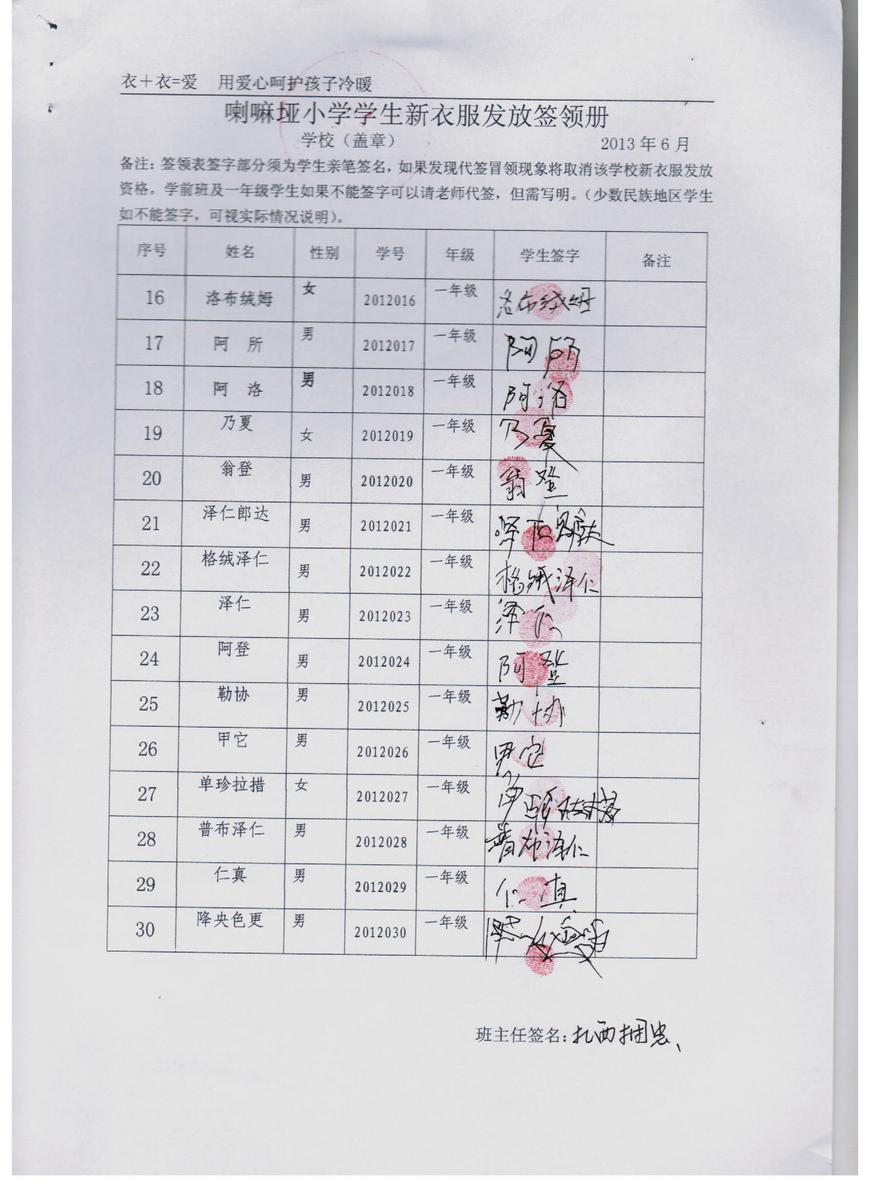 衣＋衣=爱 用爱心呵护孩子冷暖
喇嘛垭小学学生新衣服发放签领册
学校（盖章） 2013 年 6 月
备注：签领表签字部分须为学生亲笔签名，如果发现代签冒领现象将取消该学校新衣服发放
资格。学前班及一年级学生如果不能签字可以请老师代签，但需写明。（少数民族地区学生
如不能签字，可视实际情况说明）。
序号 姓名 性别 学号 年级 学生签字 备注
16 洛布绒姆 女 2012016 一年级 洛布绒姆
17 阿 所 男 2012017 一年级 阿所
18 阿 洛 男 2012018 一年级 阿洛
19 乃夏 女 2012019 一年级 乃夏
20 翁登 男 2012020 一年级 翁登
21 泽仁郎达 男 2012021 一年级 泽仁郎达
22 格绒泽仁 男 2012022 一年级 格绒泽仁
23 泽仁 男 2012023 一年级 泽仁
24 阿登 男 2012024 一年级 阿登
25 勒协 男 2012025 一年级 勒协
26 甲它 男 2012026 一年级 甲它
27 单珍拉措 女 2012027 一年级 单珍拉措
28 普布泽仁 男 2012028 一年级 普布泽仁
29 仁真 男 2012029 一年级 仁真
30 降央色更 男 2012030 一年级
班主任签名：扎西拥忠